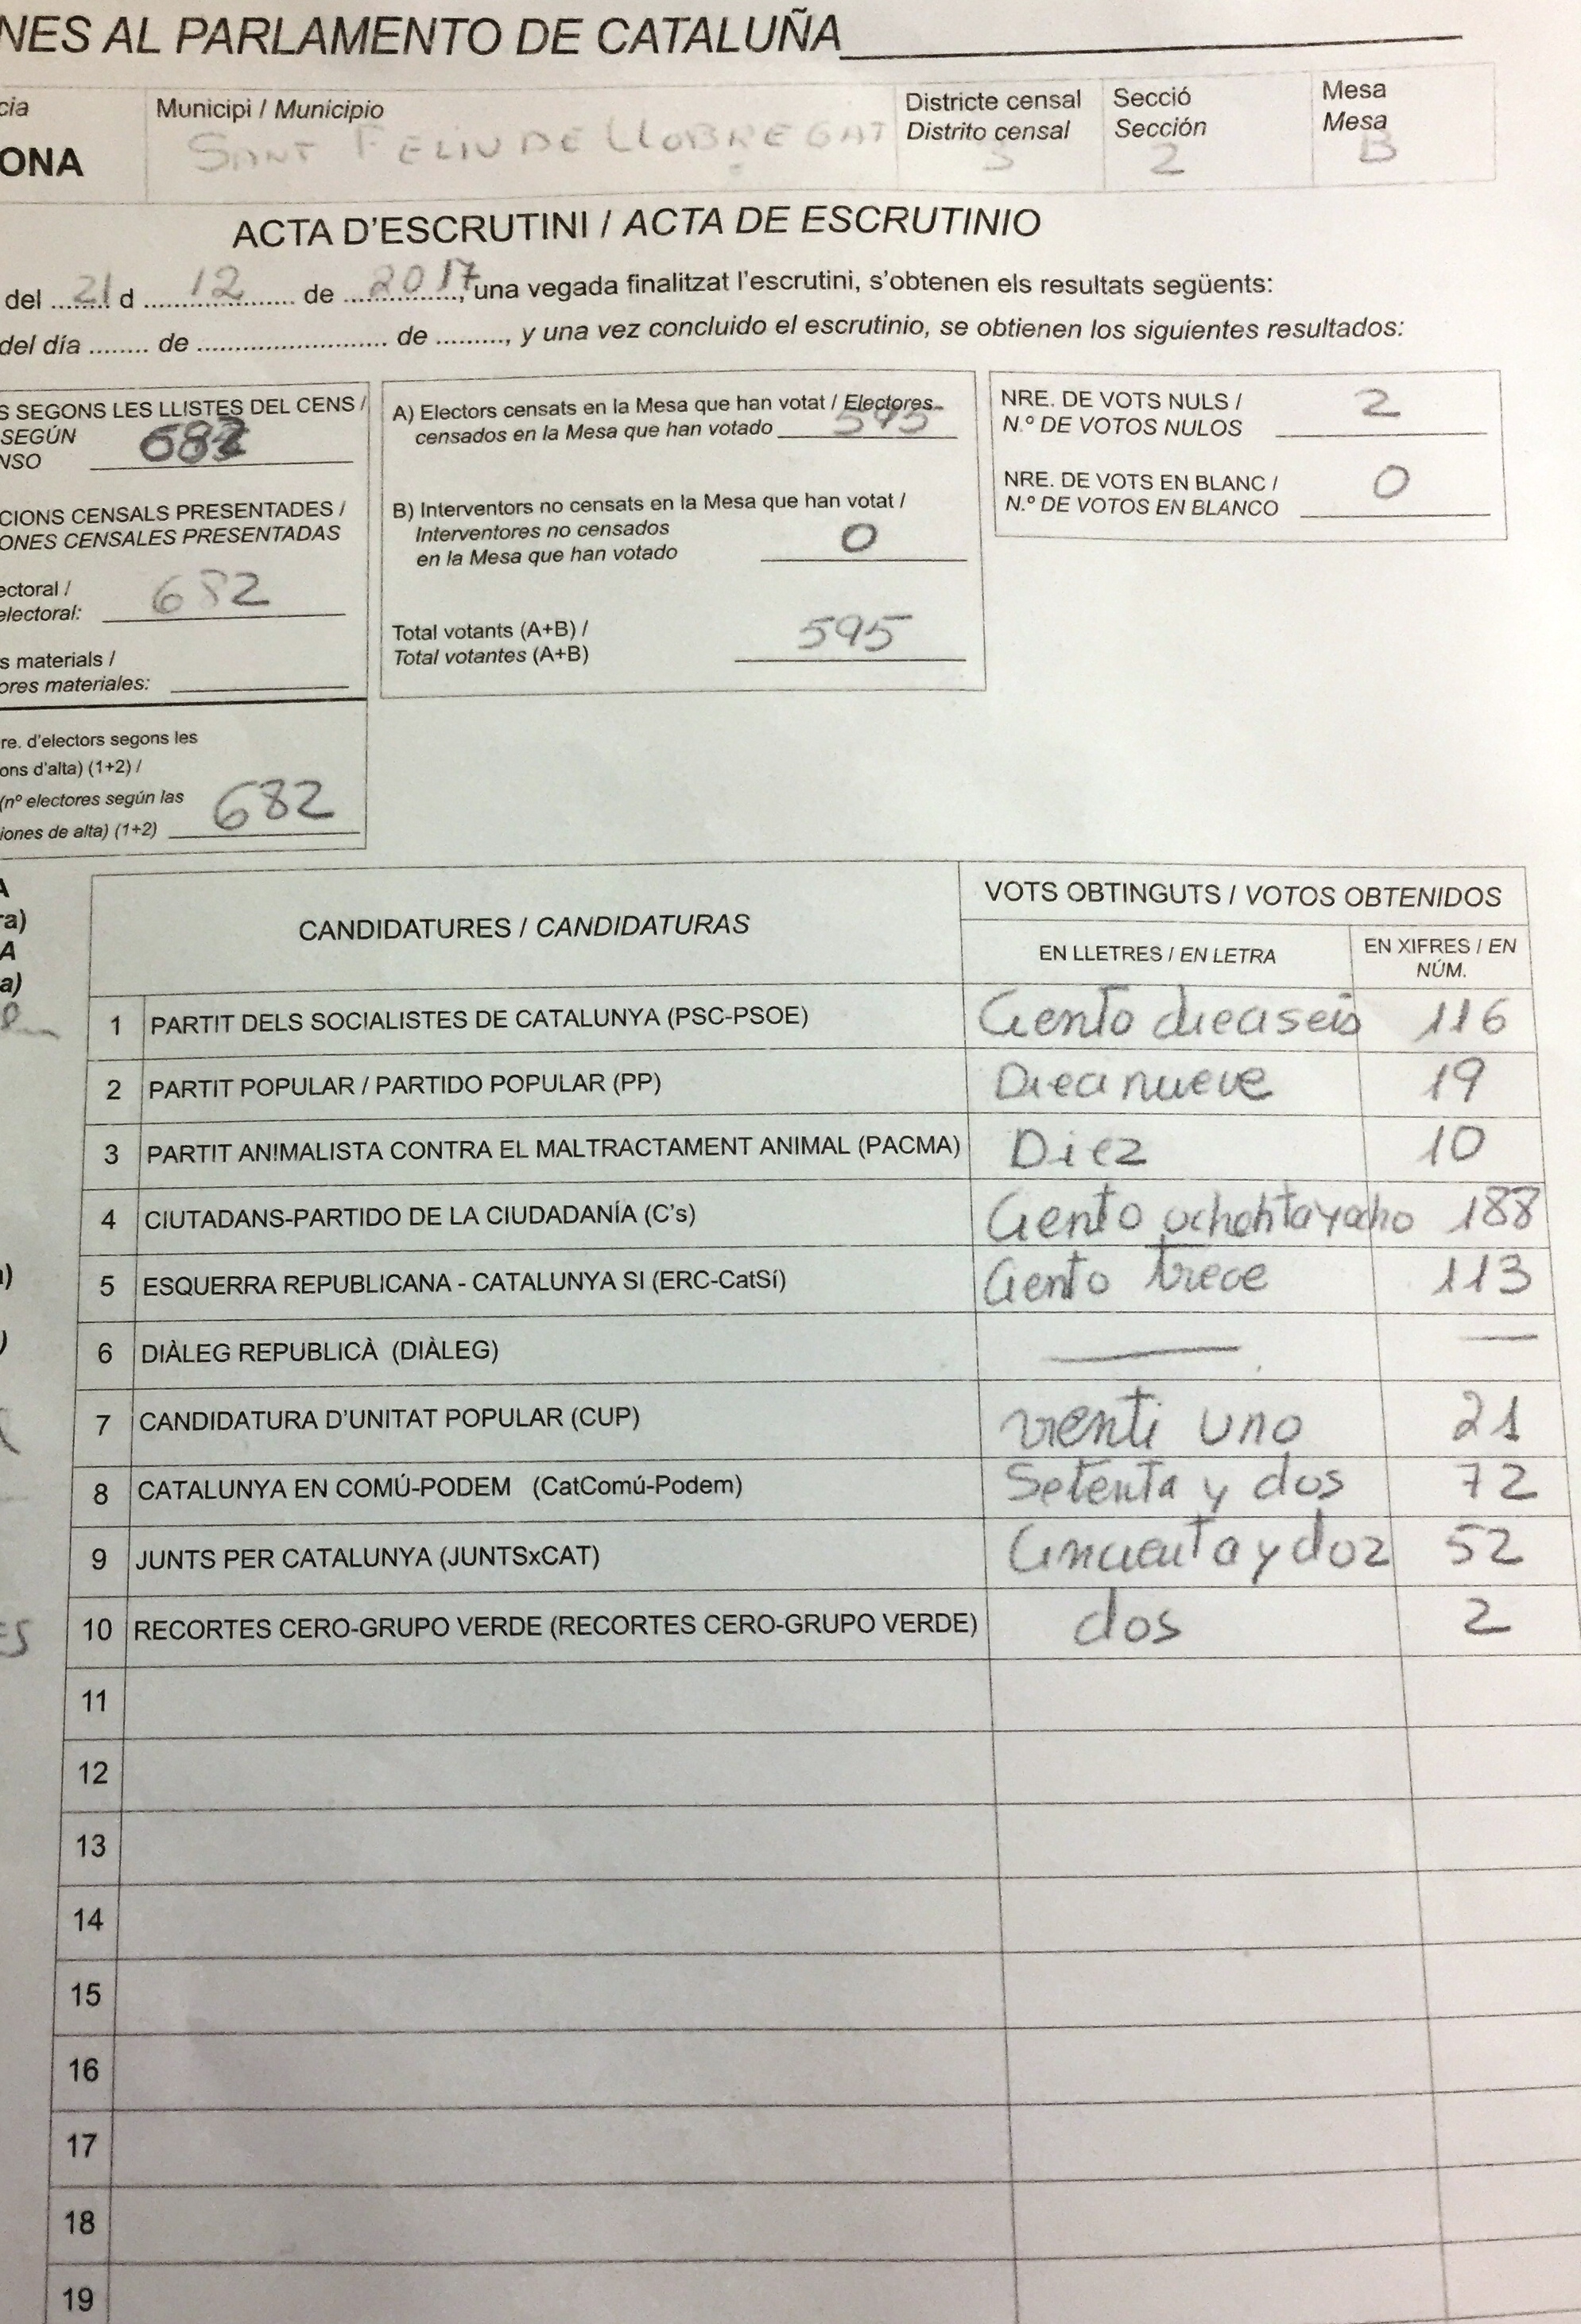 NES AL PARLAMENTO DE CATALUÑA
cia
Municipi / Municipio
Districte censal
Distrito censal
Secció
Sección
Mesa
Mesa
ONA
SANT FELIU DE LLOBREGAT
2
B
ACTA D'ESCRUTINI / ACTA DE ESCRUTINIO
del ....... 21 d ....... 12 ....... de ....... 2017, una vegada finalitzat l'escrutini, s'obtenen els resultats següents:
del día ....... de ....... de ......., y una vez concluido el escrutinio, se obtienen los siguientes resultados:
S SEGONS LES LLISTES DEL CENS /
SEGÚN
NSO 682
CIONS CENSALS PRESENTADES /
ONES CENSALES PRESENTADAS
ectoral /
electoral: 682
s materials /
ores materiales:
re. d'electors segons les
ons d'alta) (1+2) /
(nº electores según las
iones de alta) (1+2) 682
A) Electors censats en la Mesa que han votat / Electores
censados en la Mesa que han votado 595
B) Interventors no censats en la Mesa que han votat /
Interventores no censados
en la Mesa que han votado 0
Total votants (A+B) /
Total votantes (A+B) 595
NRE. DE VOTS NULS /
N.º DE VOTOS NULOS 2
NRE. DE VOTS EN BLANC /
N.º DE VOTOS EN BLANCO 0
CANDIDATURES / CANDIDATURAS
VOTS OBTINGUTS / VOTOS OBTENIDOS
EN LLETRES / EN LETRA
EN XIFRES / EN
NÚM.
1 PARTIT DELS SOCIALISTES DE CATALUNYA (PSC-PSOE) Ciento dieciseis 116
2 PARTIT POPULAR / PARTIDO POPULAR (PP) Diecinueve 19
3 PARTIT ANIMALISTA CONTRA EL MALTRACTAMENT ANIMAL (PACMA) Diez 10
4 CIUTADANS-PARTIDO DE LA CIUDADANÍA (C's) Ciento ochohtayocho 188
5 ESQUERRA REPUBLICANA - CATALUNYA SI (ERC-CatSí) Ciento trece 113
6 DIÀLEG REPUBLICÀ (DIÀLEG) — —
7 CANDIDATURA D'UNITAT POPULAR (CUP) Venti uno 21
8 CATALUNYA EN COMÚ-PODEM (CatComú-Podem) Setenta y dos 72
9 JUNTS PER CATALUNYA (JUNTSxCAT) Cincuenta y doz 52
10 RECORTES CERO-GRUPO VERDE (RECORTES CERO-GRUPO VERDE) dos 2
11
12
13
14
15
16
17
18
19